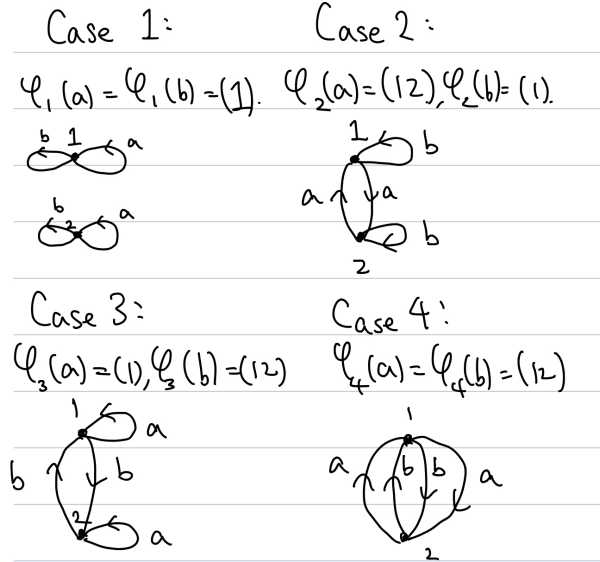 Case 1:
φ₁(a) = φ₁(b) = (1).
b 1 a
b 2 a
Case 2:
φ₂(a) = (12), φ₂(b) = (1).
1 b
a a
b
2
Case 3:
φ₃(a) = (1), φ₃(b) = (12)
1 a
b b
2 a
Case 4:
φ₄(a) = φ₄(b) = (12)
1
a b b a
2